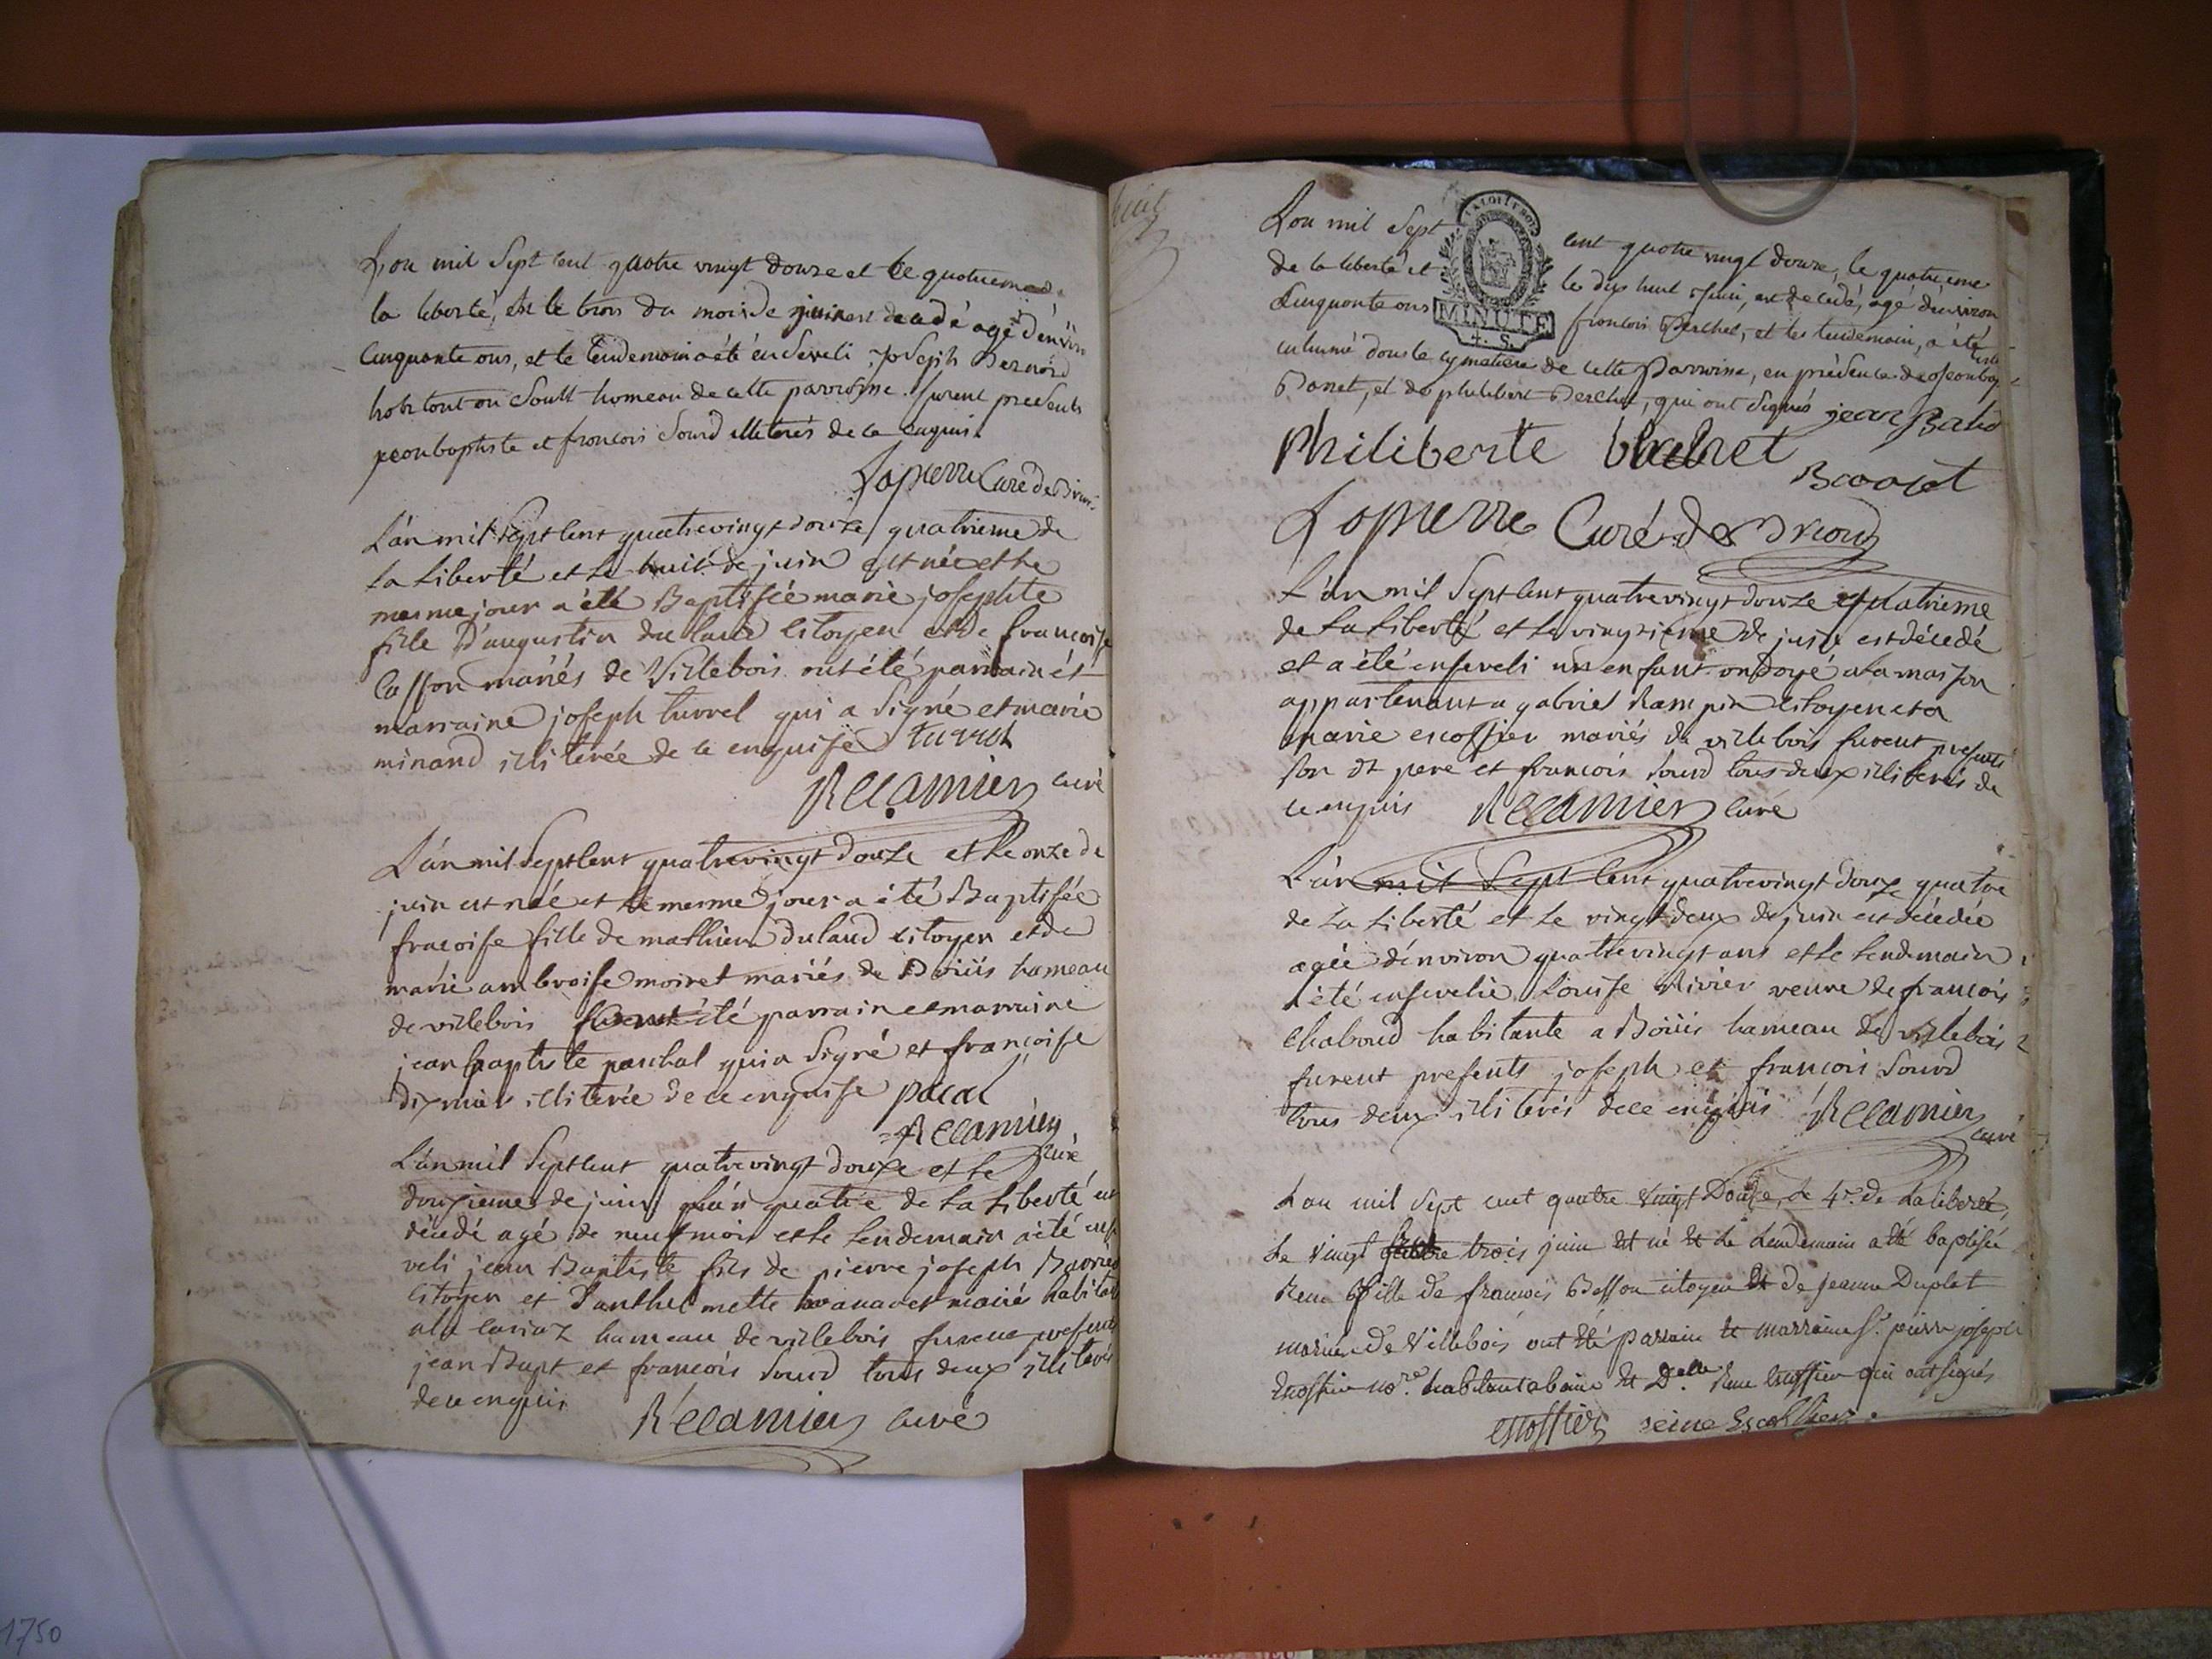 L'an mil Sept cent quatre vingt douze et le quatrieme de
la liberté, et le trois du mois de juin est decedé agé d'environ
Cinquante ans, et le lendemain a été enseveli Joseph Bernard
habitant au Soult hameau de cette parroisse. furent presents
jean baptiste et francois Sourd illiterés de ce enquis.
Lapierre Curé de
L'an mil Sept cent quatrevingt douze quatrieme de
la Liberté et le huit de juin est née et le
mesme jour a été Baptisée marie josephte
fille d'augustin du laud citoyen et de francoise
Casson mariés de Villebois ont été parrain et
marraine joseph turrel qui a Signé et marie
minand illiterée de ce enquise turrel
Récamier curé
L'an mil Sept cent quatrevingt douze et le onze de
juin est née et le mesme jour a été Baptisée
fracoise fille de mathieu dulaud citoyen et de
marie ambroise moiret mariés de Boüis hameau
de villebois furent été parrain et marraine
jean baptiste paschal qui a Signé et françoise
dixmier illiterée de ce enquise pacal
Récamier
curé
L'an mil Sept cent quatrevingt douze et le
douzieme de juin l'an quatre de la Liberté est
décédé agé de neuf mois et le lendemain a été ense
veli jean Baptiste fils de pierre joseph
citoyen et d'anthelmette mariés habitants
a la hameau de villebois furent presents
jean Bapt et francois Sourd tous deux illiterés
de ce enquis
Récamier curé
huit
L'an mil Sept cent quatre vingt douze, le quatrieme
de la liberté et le dix huit juin, est decedé, agé d'environ
Cinquante ans francois Berchet, et le lendemain, a été
inhumé dans le cymetiere de cette Parroisse, en présence de jean bap
tiste
Bonet, et de philibert Berchet, qui ont Signés jean Batis
Philiberte
Lapierre Curé de
L'an mil Sept cent quatrevingt douze quatrieme
de la Liberté et le vingtieme de juin est décedé
et a été enseveli un enfant ondoyé a la maison
appartenant a gabriel Rampin citoyen et a
marie escoffier mariés de villebois furent presents
son dt pere et francois Sourd tous deux illiterés de
ce enquis Récamier curé
L'an mil Sept cent quatrevingt douze quatre
de la Liberté et le vingt deux de juin est décédée
agée d'environ quatrevingt ans et le lendemain
a été ensevelie Louise Rivier veuve de francois
Chaboud habitante a Boüis hameau de villebois
furent presents joseph et francois Sourd
tous deux illiterés de ce enquis Récamier
curé
L'an mil Sept cent quatre vingt Douze, le 4e. de la liberté,
le vingt trois juin est né et le Lendemain a été baptisée
Rene fille de francois Besson citoyen et de jeanne Duplat
mariés De Villebois ont été parrain et marraine Sr. pierre joseph
Escoffier nore. habitant a et Delle Rene Escoffier qui ont signés
escoffier reine Escoffier.
1750
LA LOI LE ROI
MINUTE
4. S.